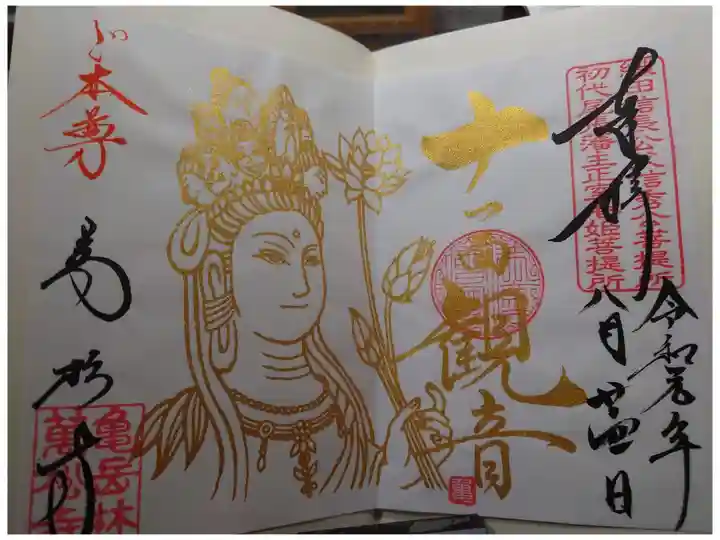 奉拝
織田信長公父信秀公菩提所
初代尾張藩主正室春姫菩提所
令和元年
八月廿四日
十一面観音
ご本尊
萬松寺
亀岳林
萬松寺